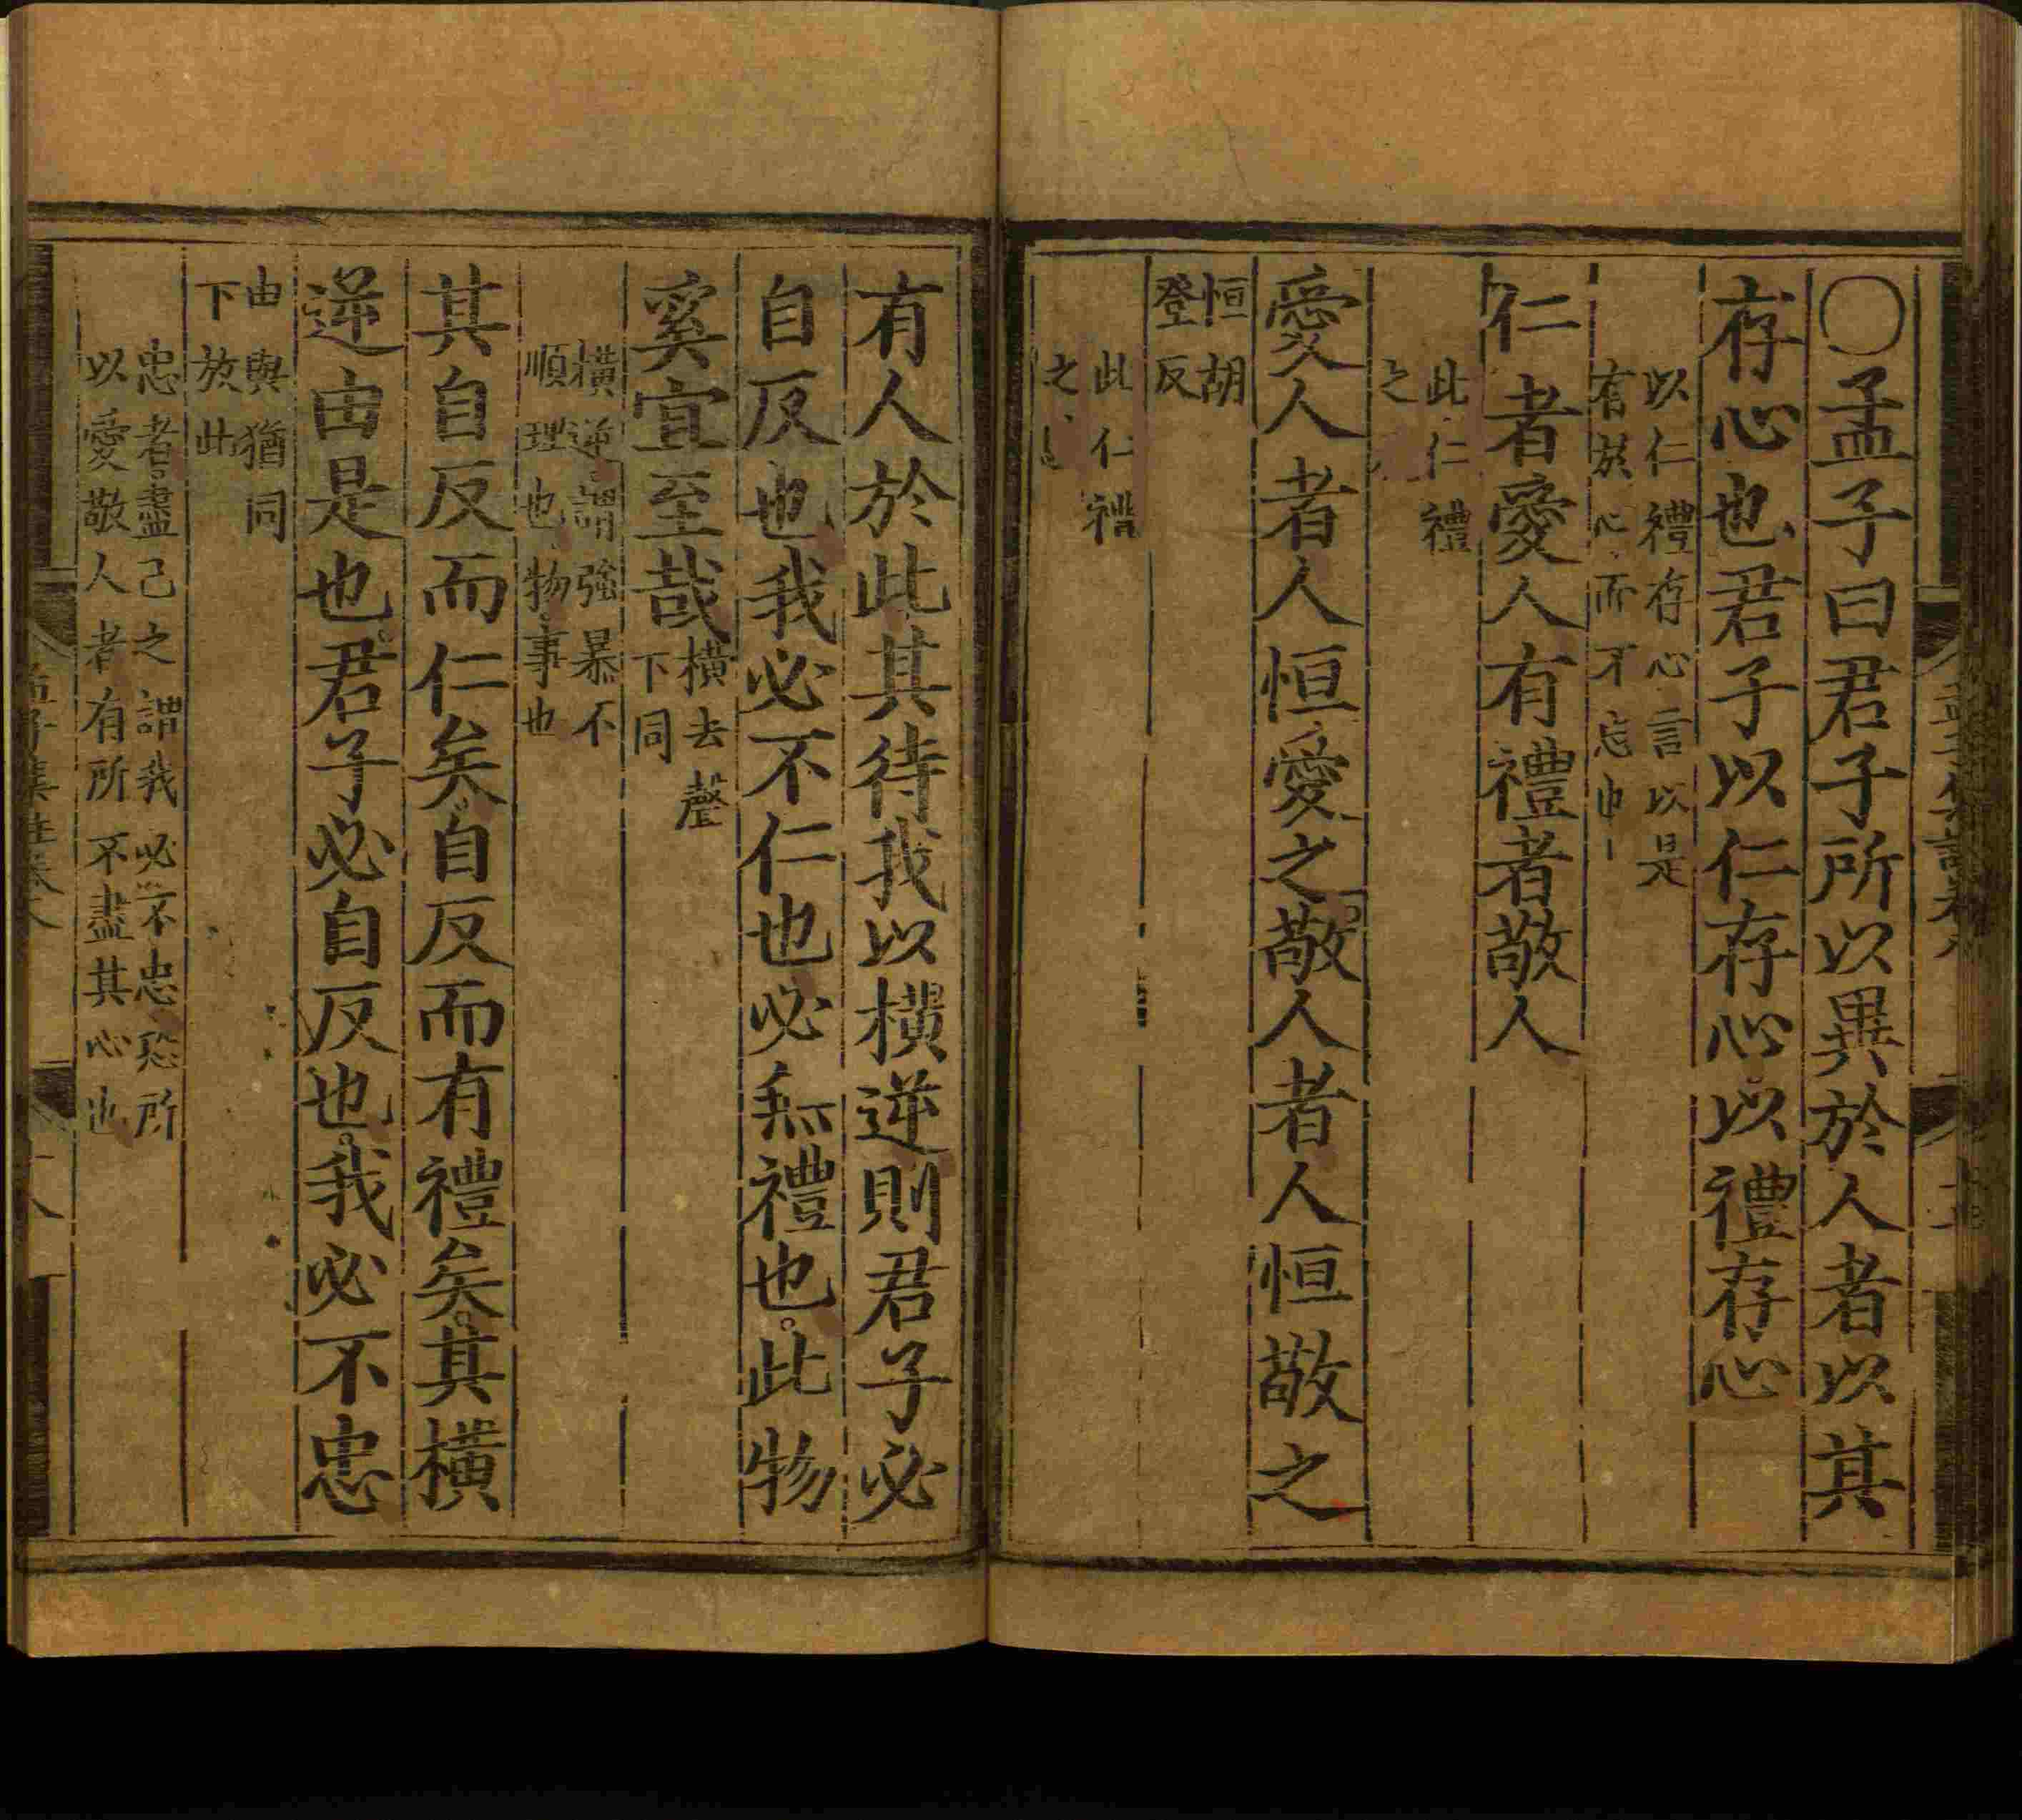 〇孟子曰君子所以異於人者以其
存心也君子以仁存心以禮存心
以仁禮存心言以是
心而不忘也
仁者愛人有禮者敬人
此仁禮
之
愛人者人恒愛之敬人者人恒敬之
恒胡
登反
此仁禮
之
有人於此其待我以橫逆則君子必
自反也我必不仁也必無禮也此物
奚宜至哉
橫去聲
下同
橫逆謂強暴不
順理也物事也
其自反而仁矣自反而有禮矣其橫
逆由是也君子必自反也我必不忠
由與猶同
下放此
忠者盡己之謂我必不忠恐所
以愛敬人者有所不盡其心也